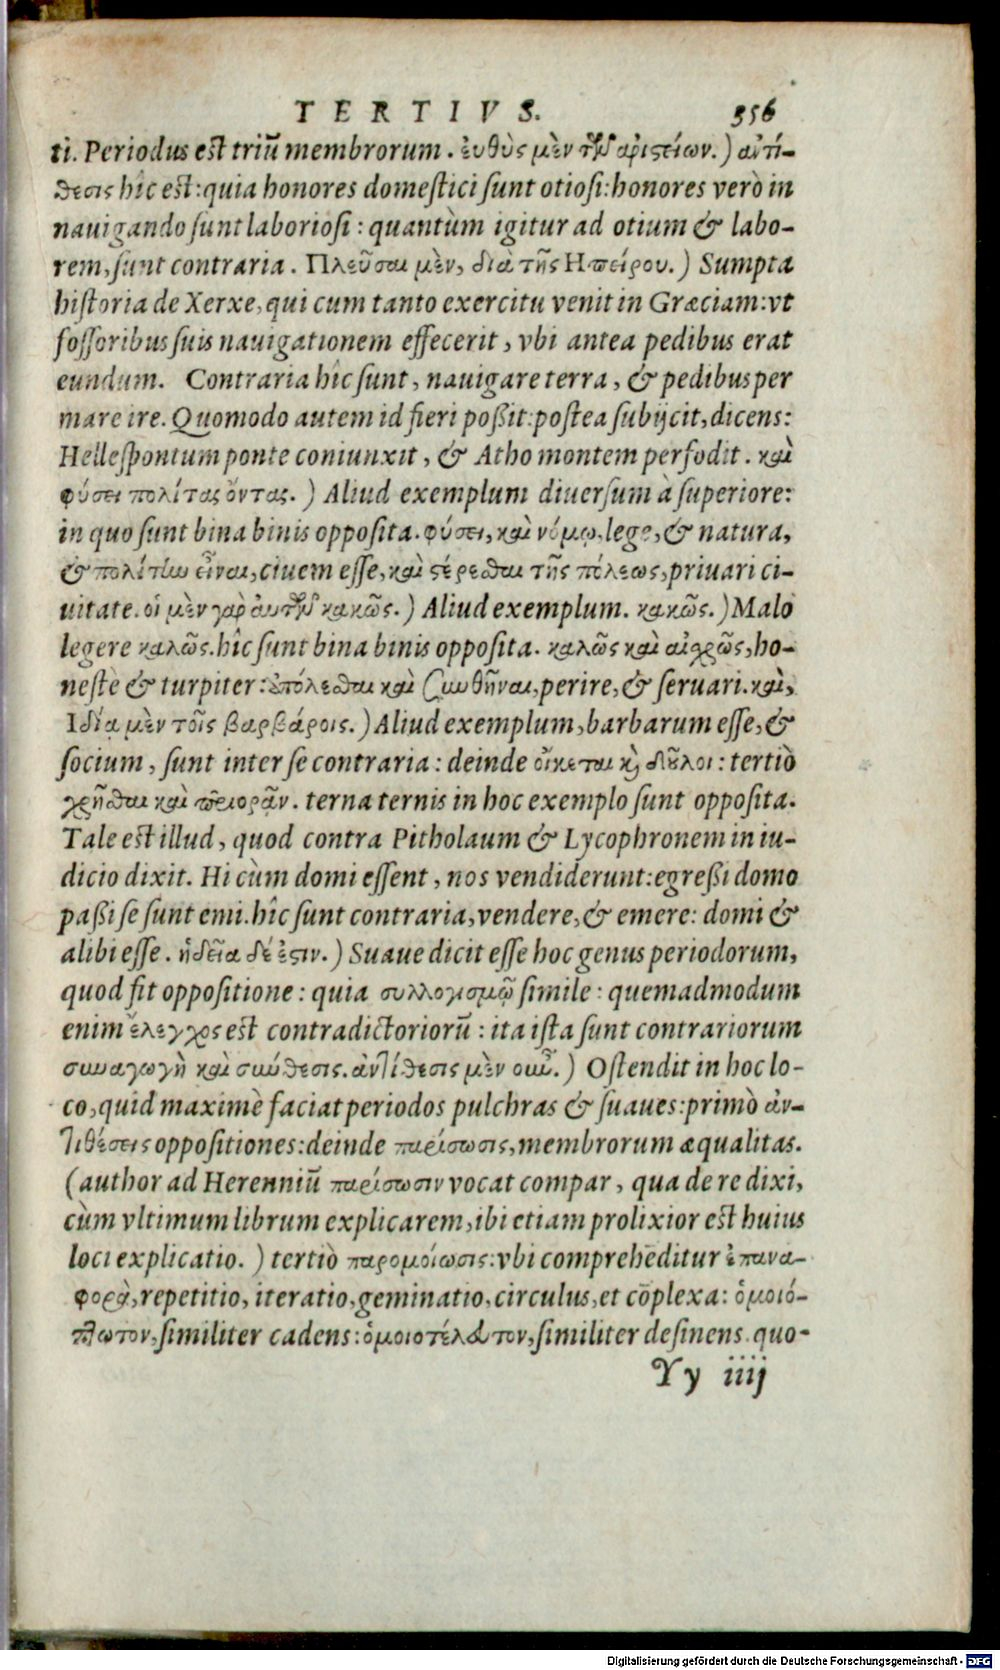 TERTIVS. 356
ti. Periodus est triũ membrorum. ἐυθὺς μὲν τῶν ἀριστείων.) ἀντί-
θεσις hîc est: quia honores domestici sunt otiosi: honores verò in
nauigando sunt laboriosi: quantùm igitur ad otium & labo-
rem, sunt contraria. Πλεῦσαι μὲν, διὰ τῆς Ηπείρου.) Sumpta
historia de Xerxe, qui cum tanto exercitu venit in Græciam: vt
fossoribus suis nauigationem effecerit, vbi antea pedibus erat
eundum. Contraria hîc sunt, nauigare terra, & pedibus per
mare ire. Quomodo autem id fieri poßit: postea subijcit, dicens:
Hellespontum ponte coniunxit, & Atho montem perfodit. καὶ
φύσει πολίτας ὄντας.) Aliud exemplum diuersum à superiore:
in quo sunt bina binis opposita. φύσει, καὶ νόμῳ, lege, & natura,
& πολίτην εἶναι, ciuem esse, καὶ στέρεσθαι τῆς πόλεως, priuari ci-
uitate. οἱ μὲν γὰρ ἀυτῶν κακῶς.) Aliud exemplum. κακῶς.) Malo
legere καλῶς. hîc sunt bina binis opposita. καλῶς καὶ αἰσχρῶς, ho-
nestè & turpiter: ἀπόλεσθαι καὶ σωθῆναι, perire, & seruari. καὶ,
Ιδία μὲν τοῖς βαρβάροις.) Aliud exemplum, barbarum esse, &
socium, sunt inter se contraria: deinde οἰκεται κỳ δοῦλοι: tertiò
χρῆσθαι καὶ περιορᾶν. terna ternis in hoc exemplo sunt opposita.
Tale est illud, quod contra Pitholaum & Lycophronem in iu-
dicio dixit. Hi cùm domi essent, nos vendiderunt: egreßi domo
paßi se sunt emi. hîc sunt contraria, vendere, & emere: domi &
alibi esse. ἡδεῖα δέ ἐστιν.) Suaue dicit esse hoc genus periodorum,
quod fit oppositione: quia συλλογισμῷ simile: quemadmodum
enim ἔλεγχος est contradictoriorũ: ita ista sunt contrariorum
συναγωγὴ καὶ σύνθεσις. ἀντίθεσις μὲν οὖν.) Ostendit in hoc lo-
co, quid maximè faciat periodos pulchras & suaues: primò ἀν-
τιθέσεις oppositiones: deinde παρίσωσις, membrorum æqualitas.
(author ad Herenniũ παρίσωσιν vocat compar, qua de re dixi,
cùm vltimum librum explicarem, ibi etiam prolixior est huius
loci explicatio.) tertiò παρομοίωσις: vbi comprehẽditur ἐπανα-
φορὰ, repetitio, iteratio, geminatio, circulus, et cõplexa: ὁμοιό-
πτωτον, similiter cadens: ὁμοιοτέλευτον, similiter desinens. quo-
Yy iiij
Digitalisierung gefördert durch die Deutsche Forschungsgemeinschaft - DFG